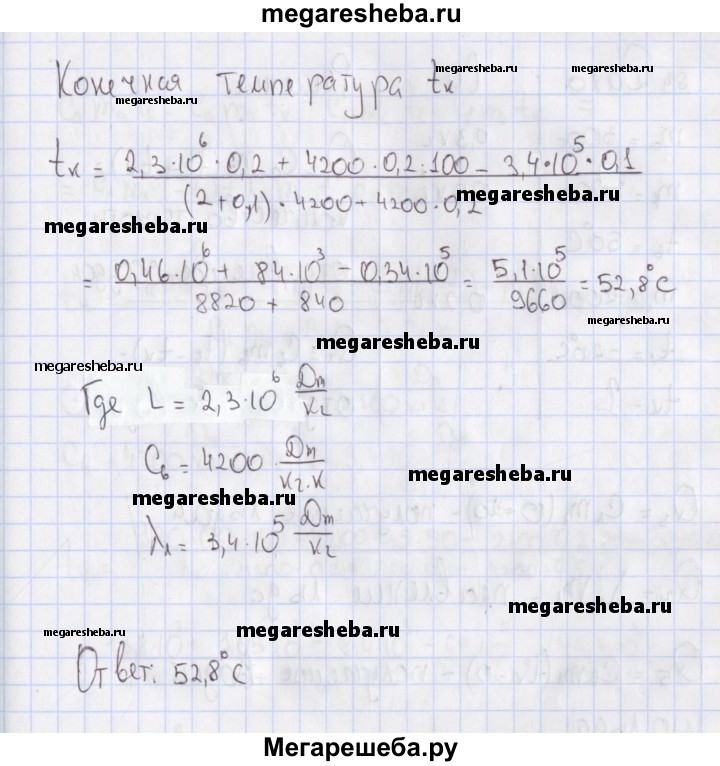 megaresheba.ru
Конечная температура tк
megaresheba.ru
megaresheba.ru
tк = 2,3·10⁶·0,2 + 4200·0,2·100 - 3,4·10⁵·0,1
(2+0,1)·4200+4200·0,2
megaresheba.ru
megaresheba.ru
= 0,46·10⁶ + 84·10³ - 0,34·10⁵ / 8820 + 840 = 5,1·10⁵ / 9660 = 52,8°C
megaresheba.ru
megaresheba.ru
megaresheba.ru
Где L = 2,3·10⁶ Дж/кг
Cв = 4200 · Дж/кг·К
megaresheba.ru
megaresheba.ru
λл = 3,4·10⁵ Дж/кг
megaresheba.ru
megaresheba.ru
megaresheba.ru
Ответ: 52,8°C
Мегарешеба.ру